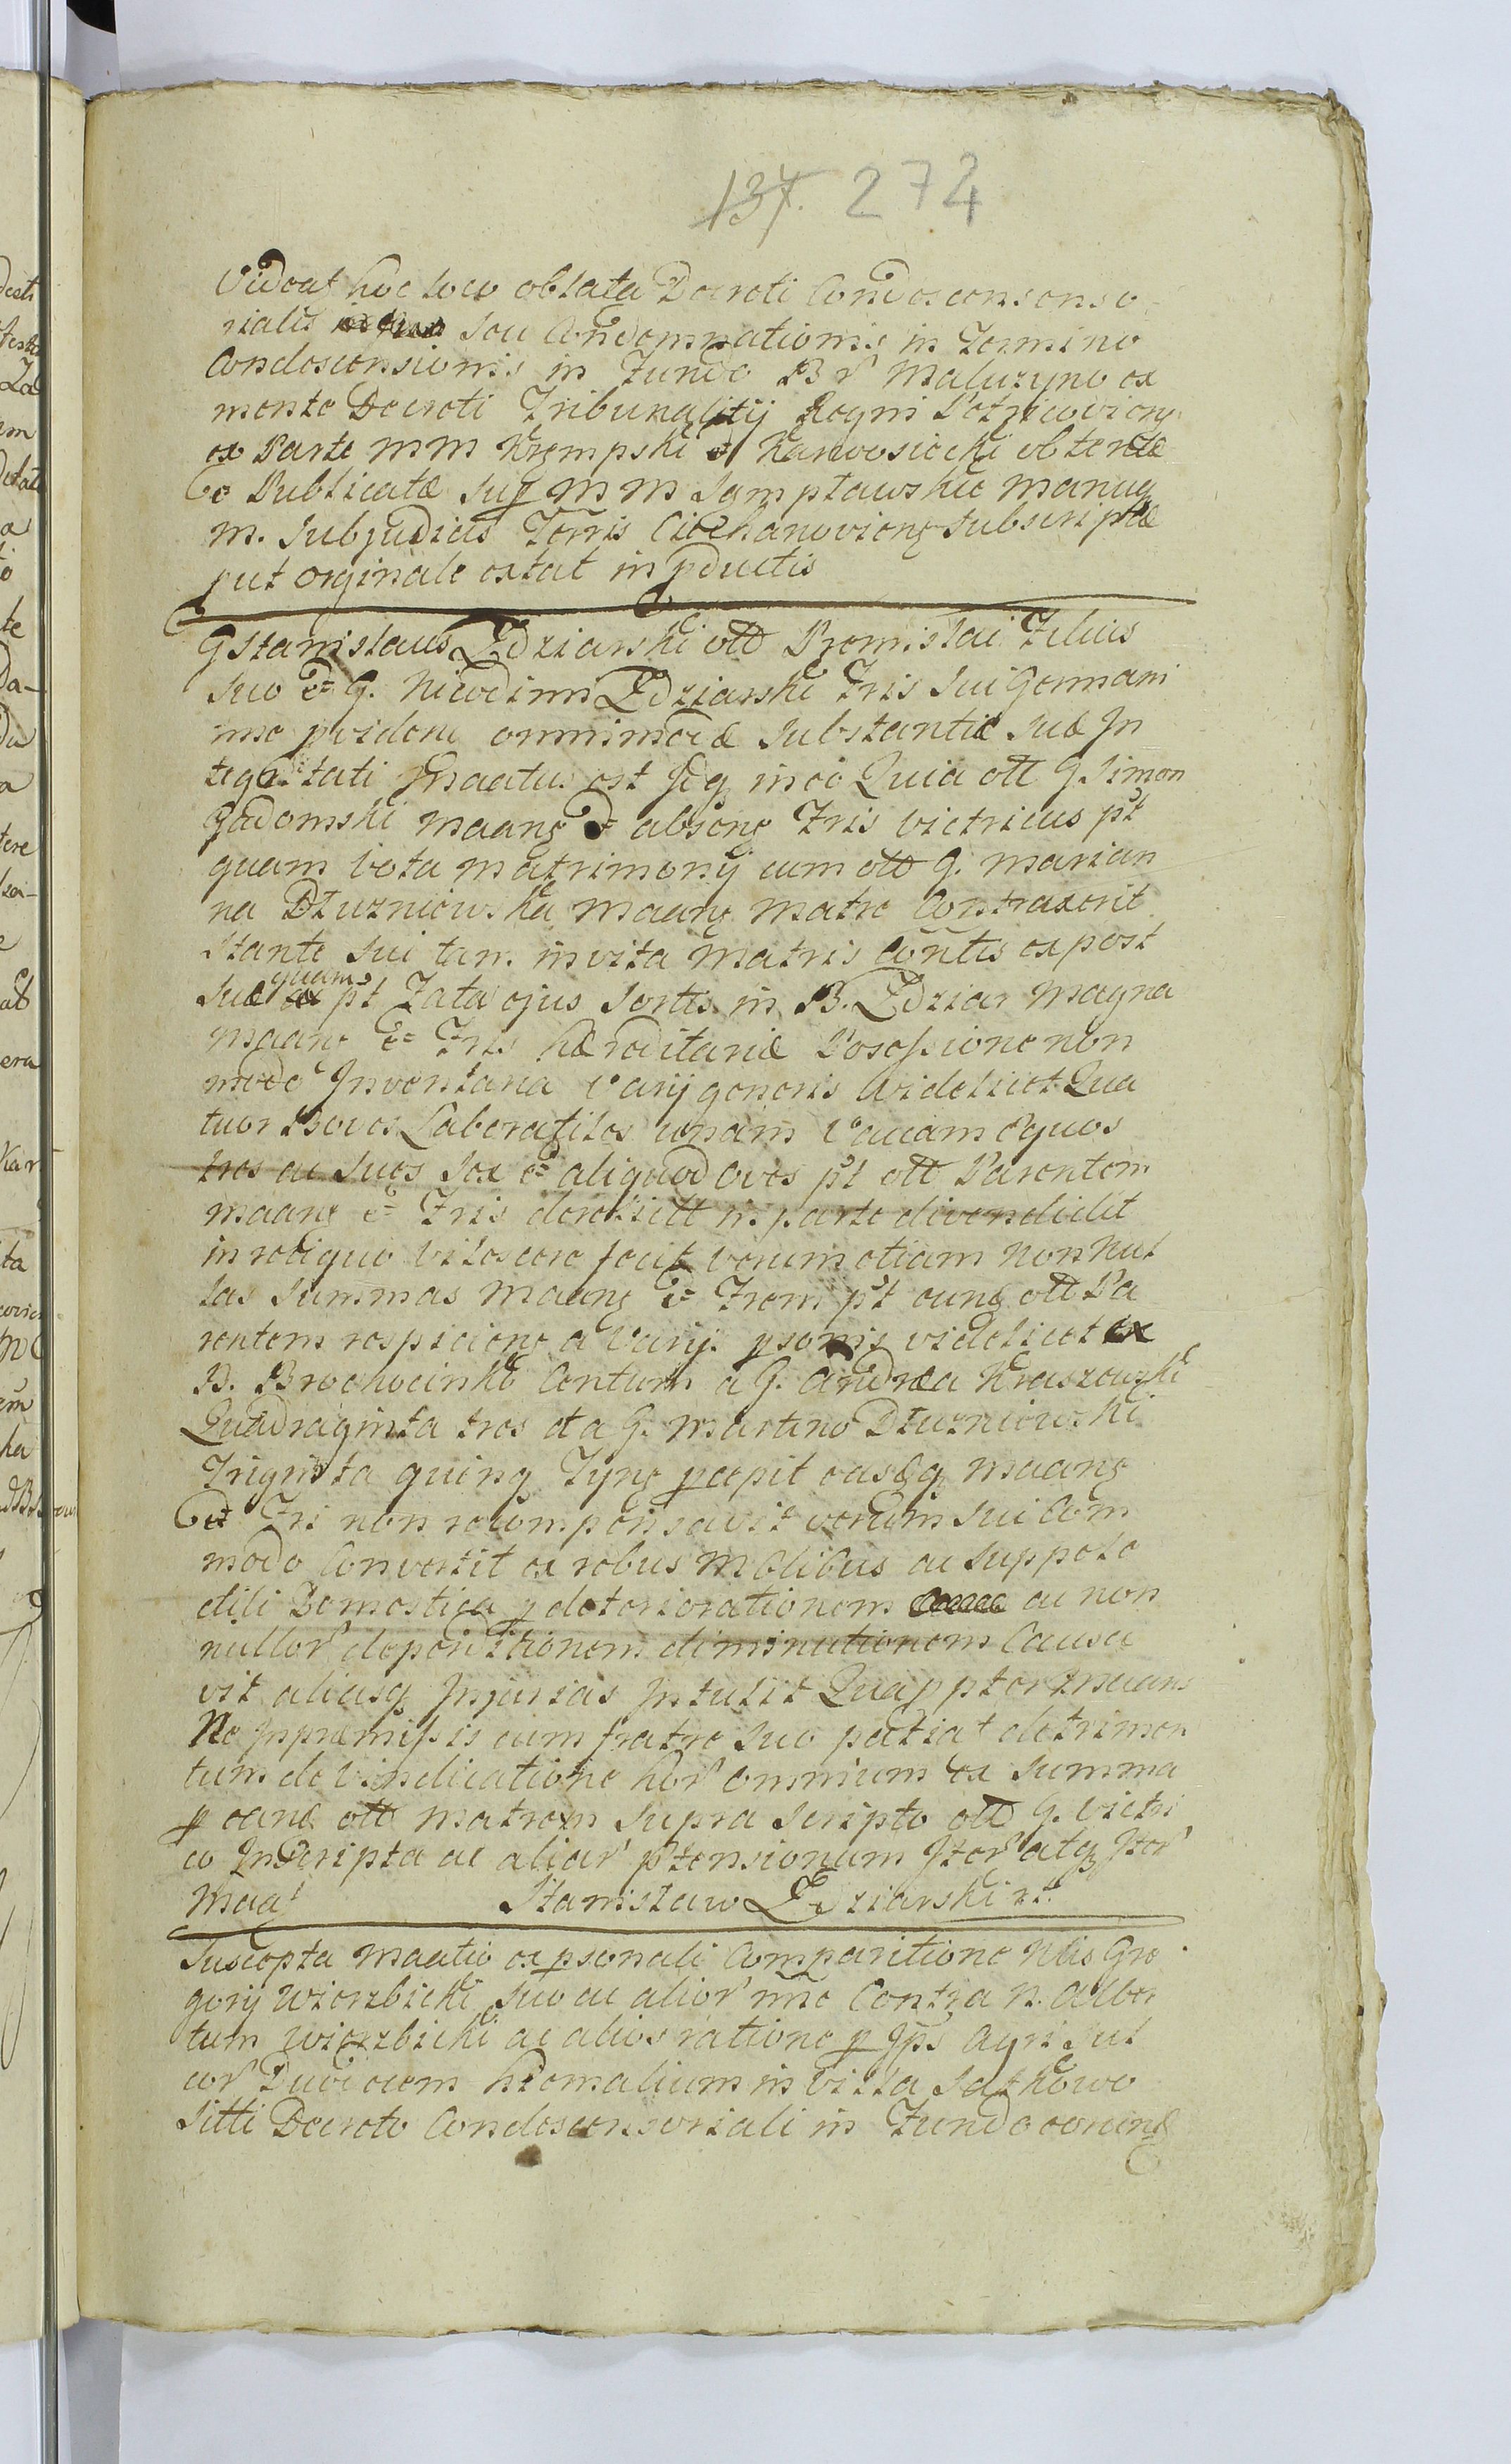 137. 274
Videat hoc loco oblata Decreti Condescenso
rialis seu Condemnationis in Termino
Condescensionis in Fundo Br Maluzyno ex
mente Decreti Tribunalitij Regni Petricovien
ex Parte MM Krępski et Karwosiecki obtentæ
et Publicatæ Sup MM Sąmpławskie Manuq
M. Subjudicis Terris Ciechanoviens Subscriptæ
put Orginale extat in pductis
G Stanislaus Zdziarski olld Premislai Filius
Suo et G. Nicodimi Zdziarski Fris Sui Germani
nne pvidens omnimodæ Substantiæ Suæ In
tegritati Maatus est Seq in eo Quia oll G. Simon
Gadomski Maans et absens Fris victricus pt
quam vota Matrimonij cum olld G. Marian
na Dłuzniewska Maans Matre Contraxerit
Stante Sui tam. in vita Matris Contis ex post
Suæ quam pt Fata ejus Sortis in B. Zdziar Magna
Maans et Fris Hæreditariæ Posessione non
modo Inventaria Varij generis videlicet Qua
tuor Boves Laboratiles unam Vaccam Equos
tres ac Sues Sex et aliquod oves pt oll Parentem
Maans et Fris derelictt in parte divendidit
in reliquo vilescere fecit verum etiam nonnul
las Summas Maans et Frem pt eund oll Pa
rentem respiciene a Varijs psonis videlicet ex
B. Brochocinko Centum a G. Andrea Kraszewski
Quadraginta tres et a G. Martino Dłuzniewski
Triginta quinq Tyns pcepit easdq Maans
et Fri non recompensavit verum Sui Com
modo Convertit ex rebus Mobilibus ac Suppele
ctili Domestica p deteriorationem ac non
nullor deperditionem diminutionem Causa
vit aliasq Injurias Intulit Quapptor Maans
Ne Inpræmissis cum fratre Suo patiat detrimen
tum de vindicatione hor omnium ex Summa
p eand olld Matrem Supra Scripto olld G. Victri
co Inscripta ac aliar ptensionum Iter atq Iter
Maat Stanisław Zdziarski rt.
Suscepta Maatio ex psonali Comparitione Nlis Gre
gorij Wierzbicki Suo ac alior nne Contra N. Alber
tum Wierzbicki ac alios ratione p Ips Agri Sul
cor Duodecem hiemalium in Villa Satkowo
Sitti Decreto Condescensoriali in Fundo eorund